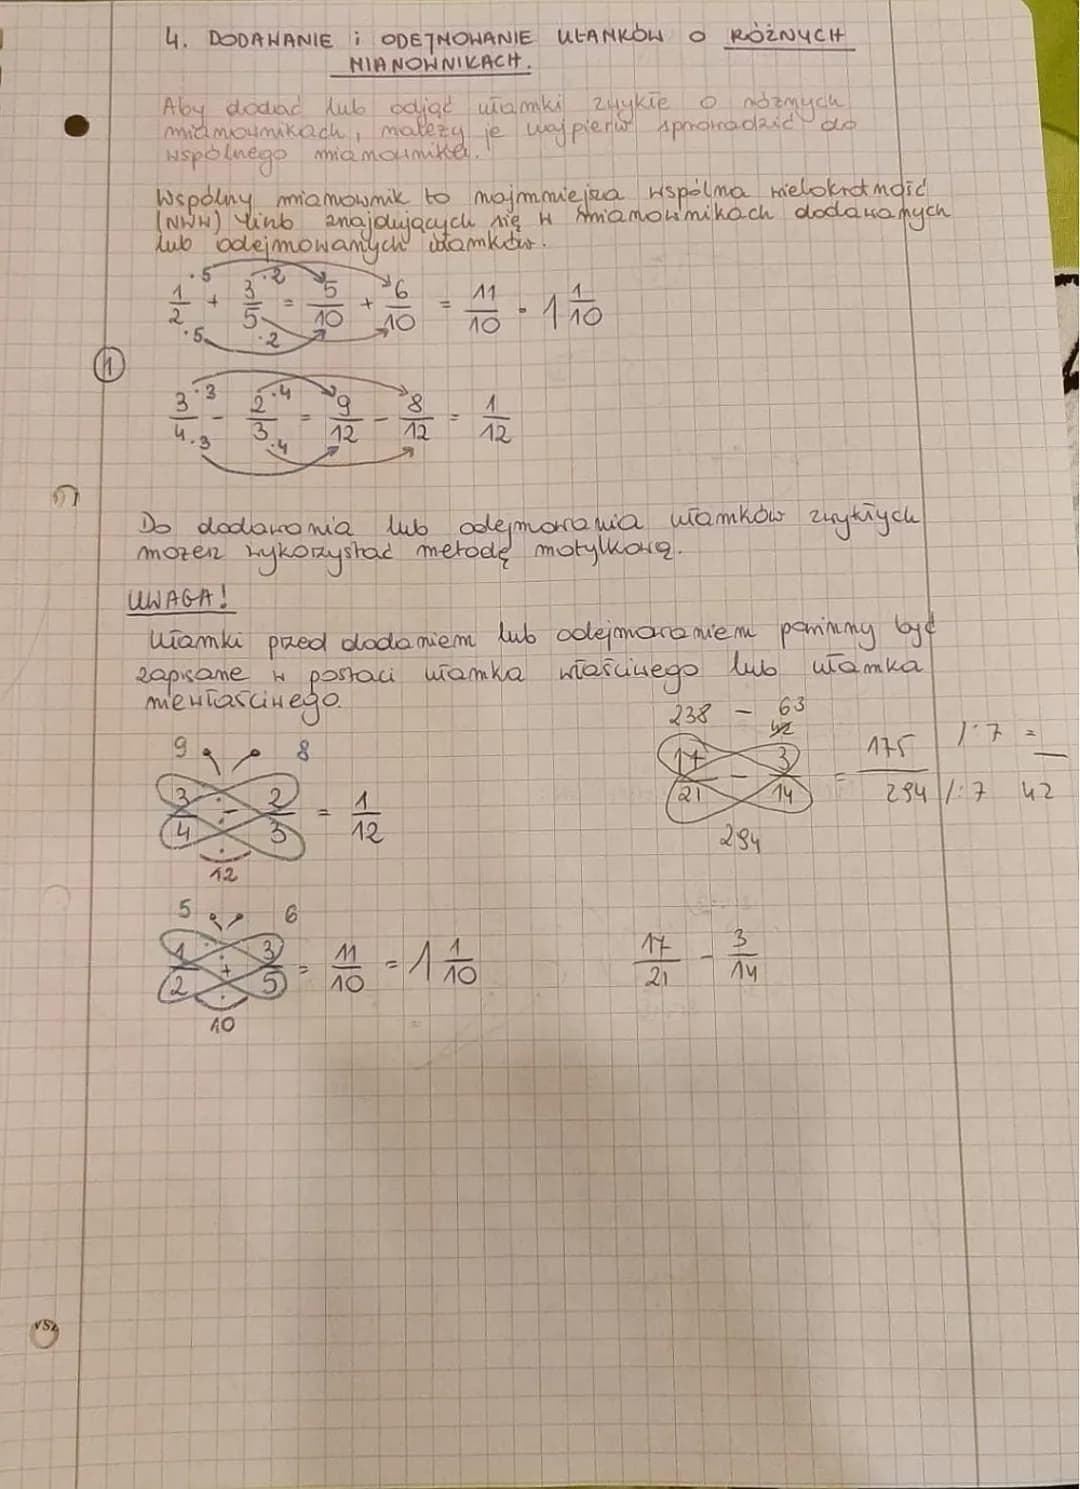 4. DODAWANIE i ODEJMOWANIE UŁAMKÓW O RÓŻNYCH
MIANOWNIKACH.
Aby dodać lub odjąć ułamki zwykłe o różnych
mianownikach, należy je najpierw sprowadzić do
wspólnego mianownika.
Wspólny mianownik to najmniejsza wspólna wielokrotność
(NWW) liczb znajdujących się w mianownikach dodawanych
lub odejmowanych ułamków.
1/2 ·5/·5 + 3/5 ·2/·2 = 5/10 + 6/10 = 11/10 = 1 1/10
1
3/4 ·3/·3 - 2/3 ·4/·4 = 9/12 - 8/12 = 1/12
Do dodawania lub odejmowania ułamków zwykłych
możesz wykorzystać metodę motylkową.
UWAGA!
Ułamki przed dodaniem lub odejmowaniem powinny być
zapisane w postaci ułamka właściwego lub ułamka
niewłaściwego.
9 8
3/4 - 2/3 = 1/12
12
238 - 63
42
17/21 - 3/14 = 175/294 /:7 /:7 = _/42
294
5 6
1/2 + 3/5 = 11/10 = 1 1/10
10
17/21 - 3/14